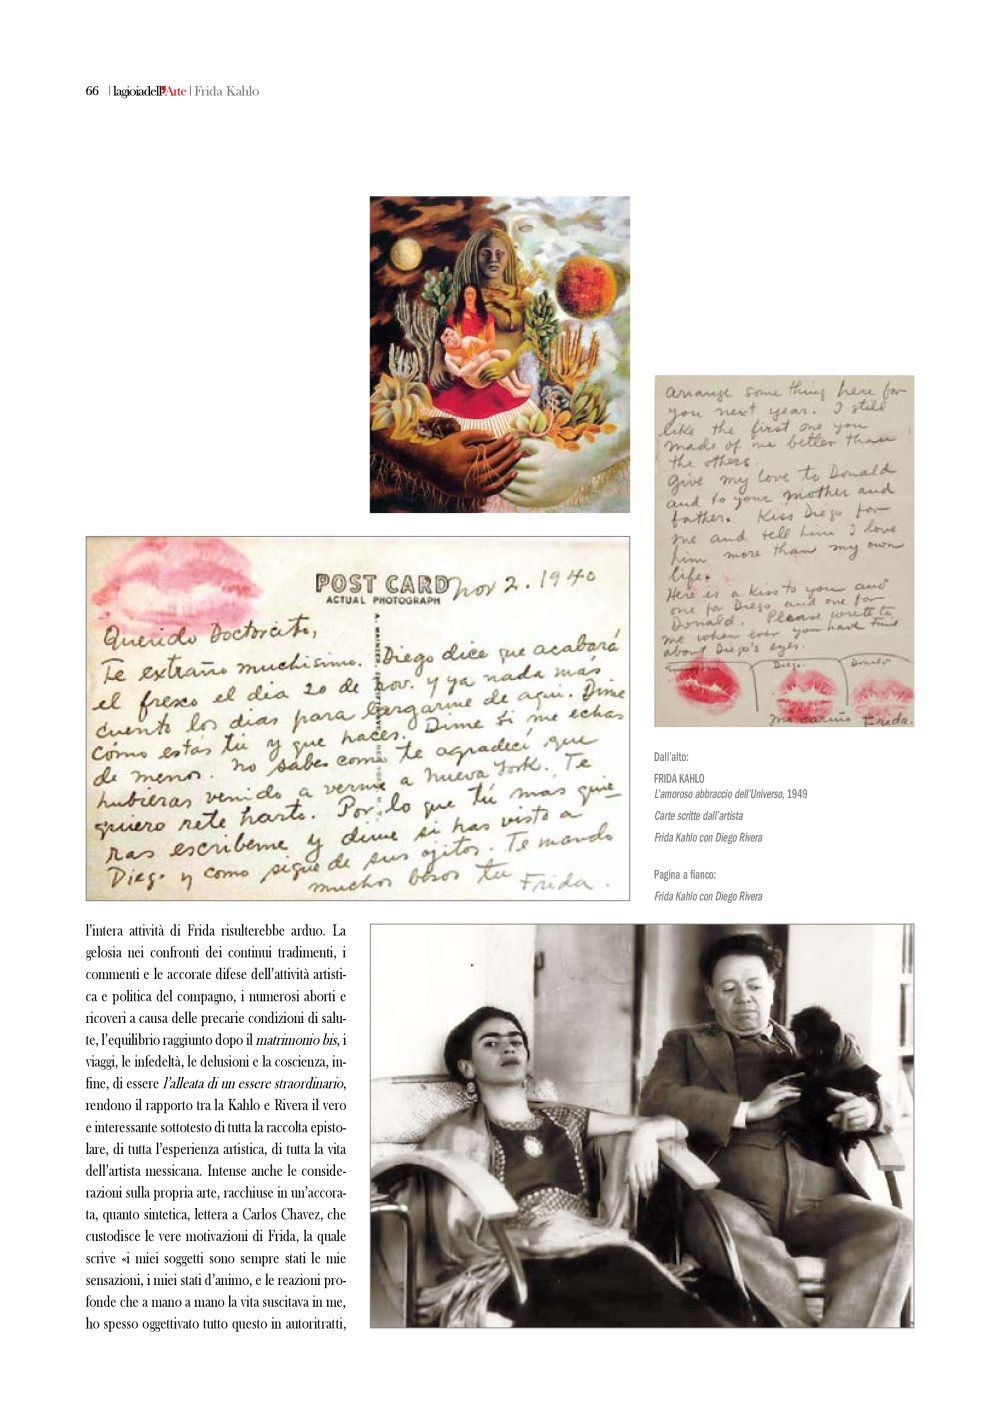 66 | lagioiadell'Arte | Frida Kahlo
arrange some thing here for
you next year. I still
like the first one you
made of me better than
the others.
Give my love to Donald
and to your mother and
father. Kiss Diego for
me and tell him I love
him more than my own
life.
Here is a kiss to you and
one for Diego and one for
Donald. Please write to
me when ever you have time
about Diego's eyes.
Diego. Donald
mi cariño Frida.
POST CARD Nov 2. 1940
ACTUAL PHOTOGRAPH
Querido Doctorcito,
Te extraño muchisimo. Diego dice que acabará
el fresco el dia 20 de nov. y ya nada más
cuento los dias para largarme de aqui. Dime
cómo estas tú y que haces. Dime si me echas
de menos. no sabes como te agradecí que
hubieras venido a verme a Nueva York. Te
quiero rete harto. Por lo que tú mas quie
ras escribeme y dime si has visto a
Diego y como sigue de sus ojitos. Te mando
muchos besos tu Frida.
Dall'alto:
FRIDA KAHLO
L'amoroso abbraccio dell'Universo, 1949
Carte scritte dall'artista
Frida Kahlo con Diego Rivera
Pagina a fianco:
Frida Kahlo con Diego Rivera
l'intera attività di Frida risulterebbe arduo. La
gelosia nei confronti dei continui tradimenti, i
commenti e le accorate difese dell'attività artisti-
ca e politica del compagno, i numerosi aborti e
ricoveri a causa delle precarie condizioni di salu-
te, l'equilibrio raggiunto dopo il matrimonio bis, i
viaggi, le infedeltà, le delusioni e la coscienza, in-
fine, di essere l'alleata di un essere straordinario,
rendono il rapporto tra la Kahlo e Rivera il vero
e interessante sottotesto di tutta la raccolta episto-
lare, di tutta l'esperienza artistica, di tutta la vita
dell'artista messicana. Intense anche le conside-
razioni sulla propria arte, racchiuse in un'accora-
ta, quanto sintetica, lettera a Carlos Chavez, che
custodisce le vere motivazioni di Frida, la quale
scrive «i miei soggetti sono sempre stati le mie
sensazioni, i miei stati d'animo, e le reazioni pro-
fonde che a mano a mano la vita suscitava in me,
ho spesso oggettivato tutto questo in autoritratti,